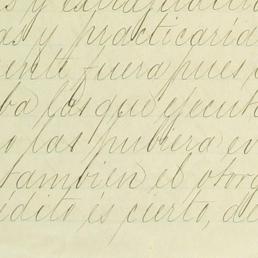 y
as y practicaria
ente fuera pues
ba las que ejecuto
o las pudiera ev
tambien el otorg
édito és cierto, de